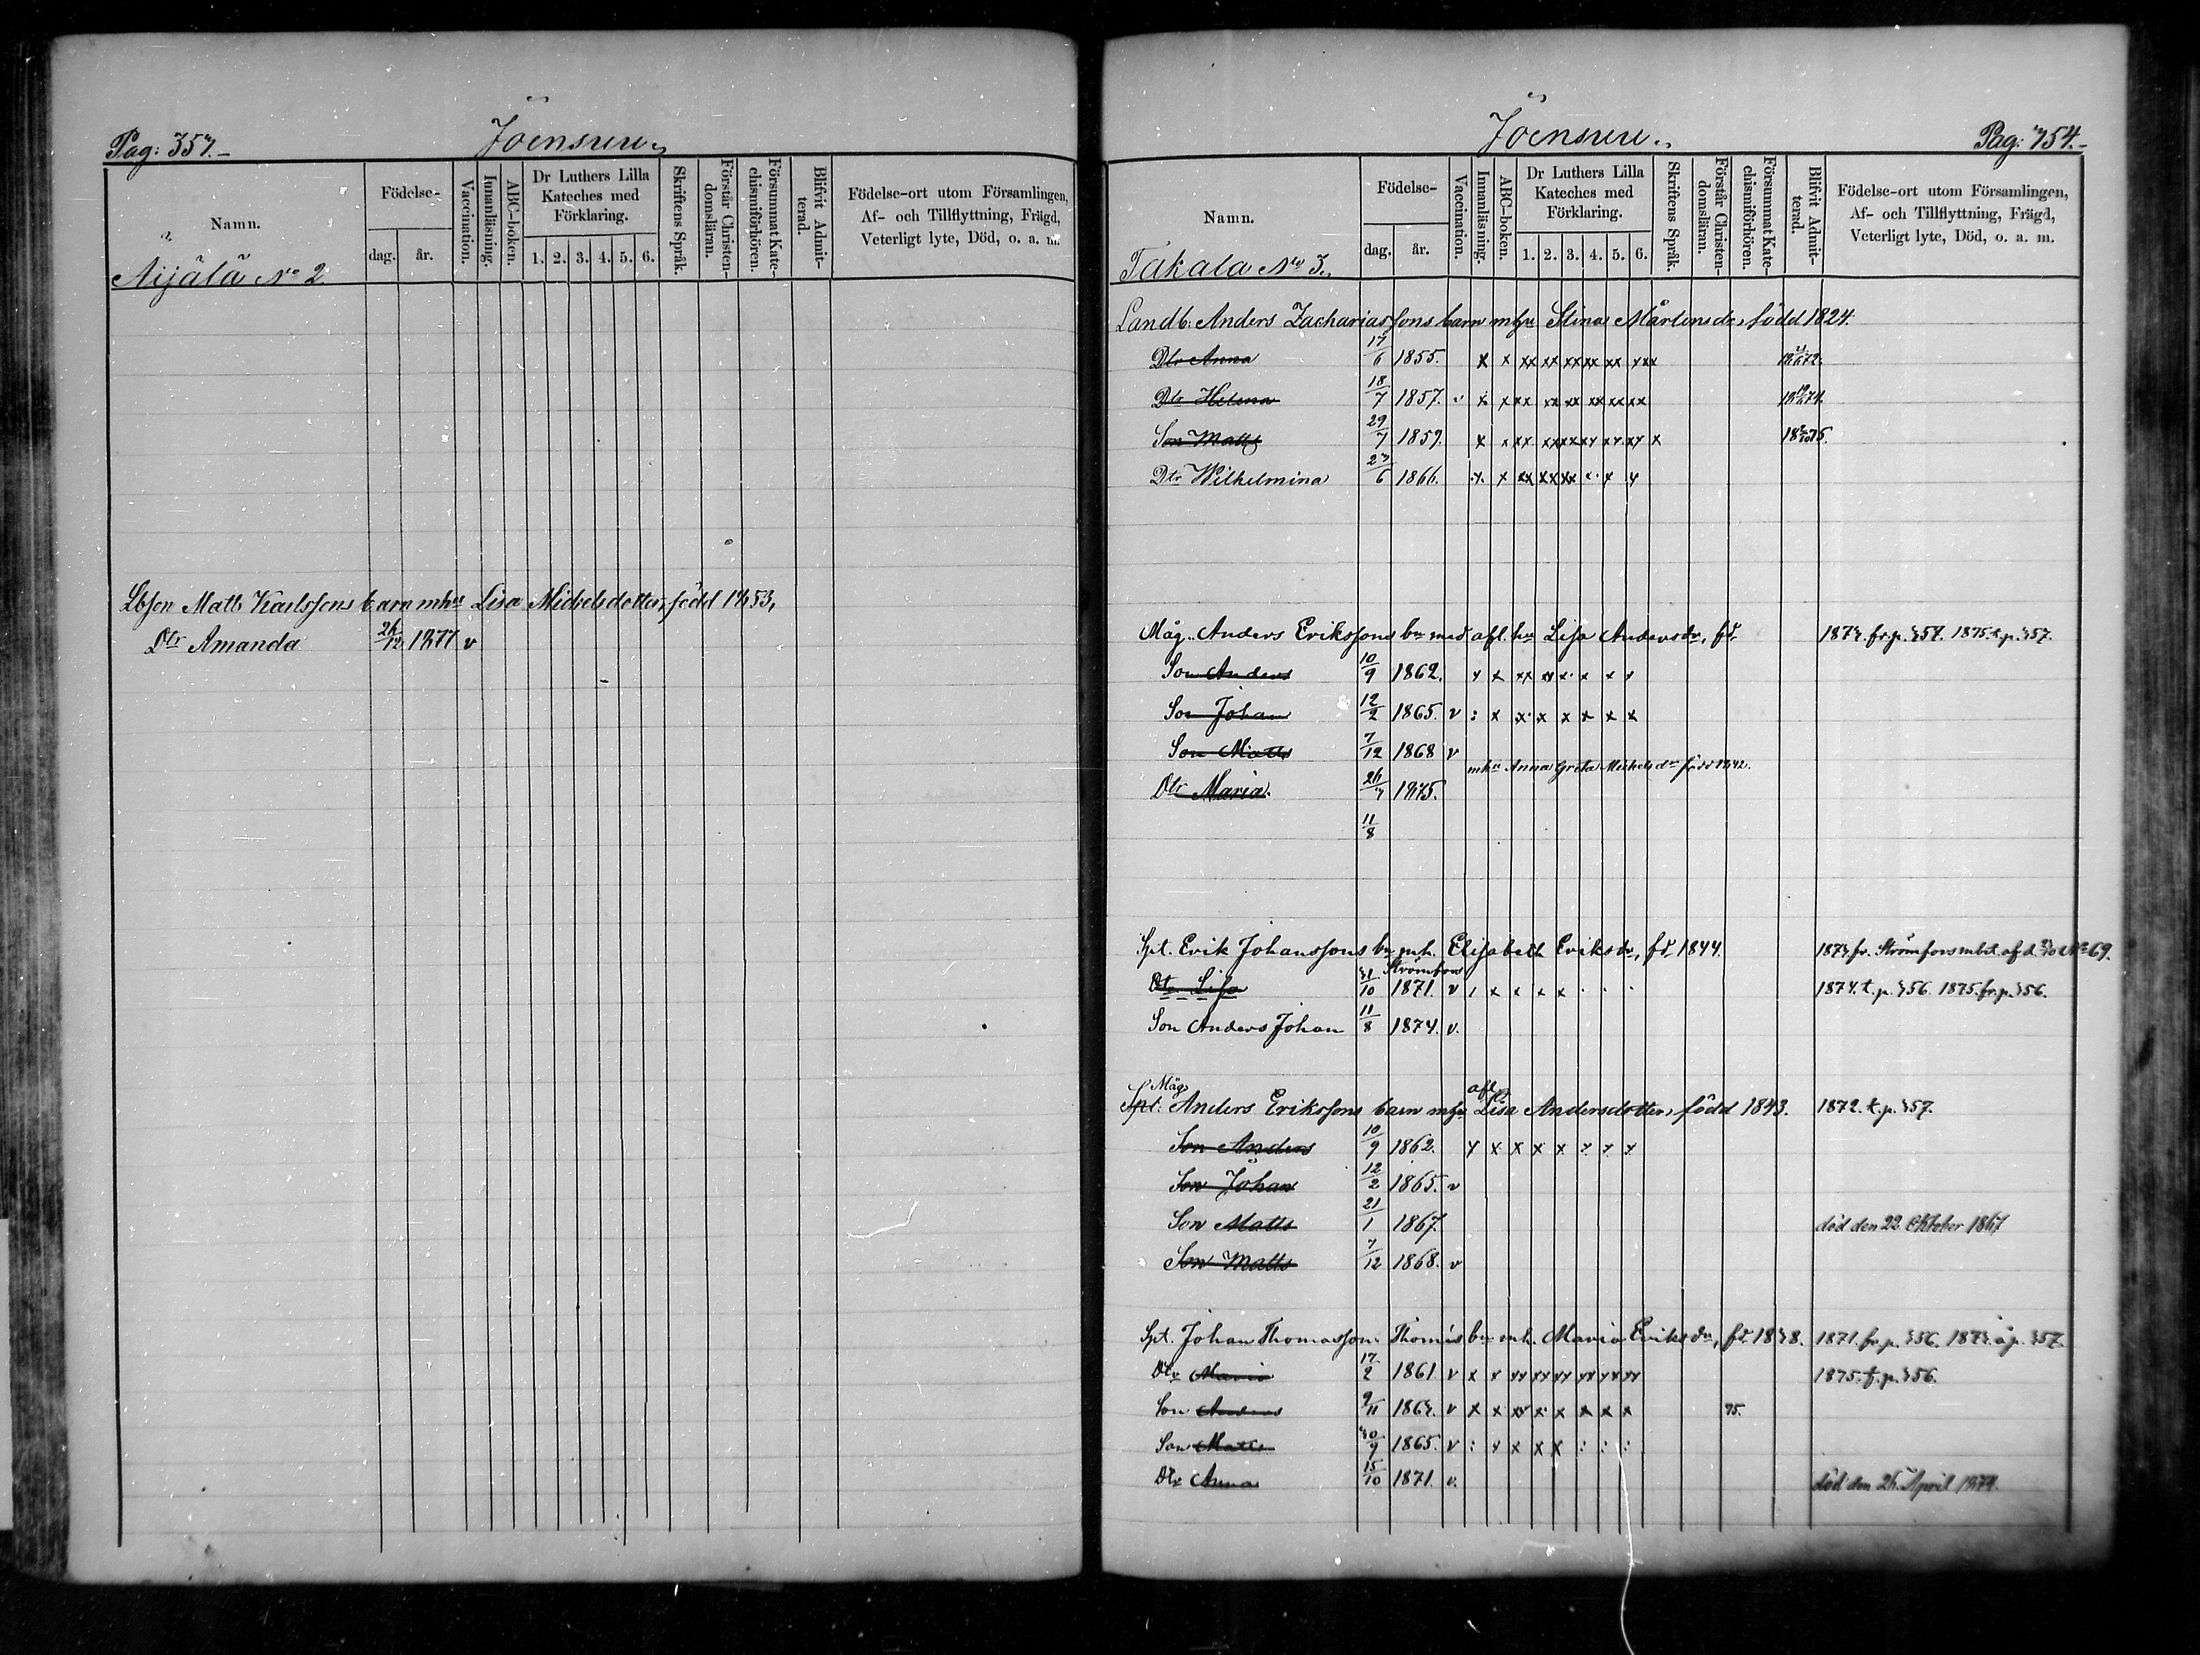 Pag: 357.
Joensuu
Namn.
Födelse-
dag.
år.
Vaccination.
Innanläsning.
ABC-boken.
Dr Luthers Lilla Kateches med Förklaring.
1. 2. 3. 4. 5. 6.
Skriftens Språk.
Förstår Christendomsläran.
Försummat Katechismiförhören.
Blifvit Admitterad.
Födelse-ort utom Församlingen, Af- och Tillflyttning, Frägd, Veterligt lyte, Död, o. a. m.
Aijälä No 2
Matts Karlssons barn mhu Lisa Michelsdotter, född 1853,
Dtr Amanda 26/12 1877 v
Joensuu.
Pag: 354.
Namn.
Födelse-
dag.
år.
Vaccination.
Innanläsning.
ABC-boken.
Dr Luthers Lilla Kateches med Förklaring.
1. 2. 3. 4. 5. 6.
Skriftens Språk.
Förstår Christendomsläran.
Försummat Katechismiförhören.
Blifvit Admitterad.
Födelse-ort utom Församlingen, Af- och Tillflyttning, Frägd, Veterligt lyte, Död, o. a. m.
Takala No 3.
Landb: Anders Zachariassons barn mhu Stina Mårtensdr, född 1824.
Dtr Anna 17/6 1855. x x xx xx xx xx xx xxx
Dtr Helena 18/7 1857. v x x xx xx xx xx xx xx
Son Matts 29/7 1859. x x xx xx xx xx xx xx x
Dtr Wilhelmina 27/6 1866. x x xx xx xx
Måg. Anders Erikssons bn med afl. hu Lisa Andersdr, fd. 1873. fr. p. 357. 1875. t. p. 357.
Son Anders 10/9 1862.
Son Johan 12/2 1865. v
Son Matts 7/12 1868 v
mhu Anna Greta Michelsdr född 1842.
Dtr Maria 26/7 1875.
11/8
Spt. Erik Johanssons bn mh. Elisabeth Eriksdr, fd 1844. 1873 fr. Strömfors
Strömfors
Dtr Lisa 31/10 1871. v 1874. t. p. 356. 1875. fr. p. 356.
Son Anders Johan 11/8 1874. v.
Mågs afl
Spt. Anders Erikssons barn mhu Lisa Andersdotter, född 1843. 1872. t. p. 357.
Son Anders 10/9 1862. x x x x x x x x
Son Johan 12/2 1865. v
Son Matts 21/1 1867. död den 22 Oktober 1867
Son Matts 7/12 1868. v
Spt. Johan Thomasson Thomas bn mh. Maria Eriksdr, fd. 1838. 1871. fr. p. 356. 1873. å p. 357.
Dtr Maria 17/2 1861 v x x xx xx xx xx xx xx 1875. t. p. 356.
Son Anders 9/11 1863. v x x xx x x x x x 75.
Son Matts 30/9 1865. v : x x x x : : :
Dtr Anna 15/10 1871. v. död den 26 April 1874.